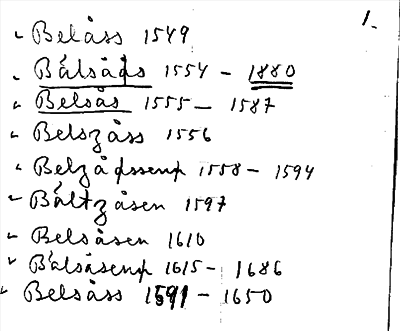 1.
" Belåss 1549
" Bålsåds 1554 - 1880
" Belsås 1555 - 1587
" Belszåss 1556
" Belzåssenn 1558 - 1594
" Båltzåsen 1597
" Belsåsen 1610
" Bålsåsenn 1615 - 1686
" Belsåss 1591 - 1650